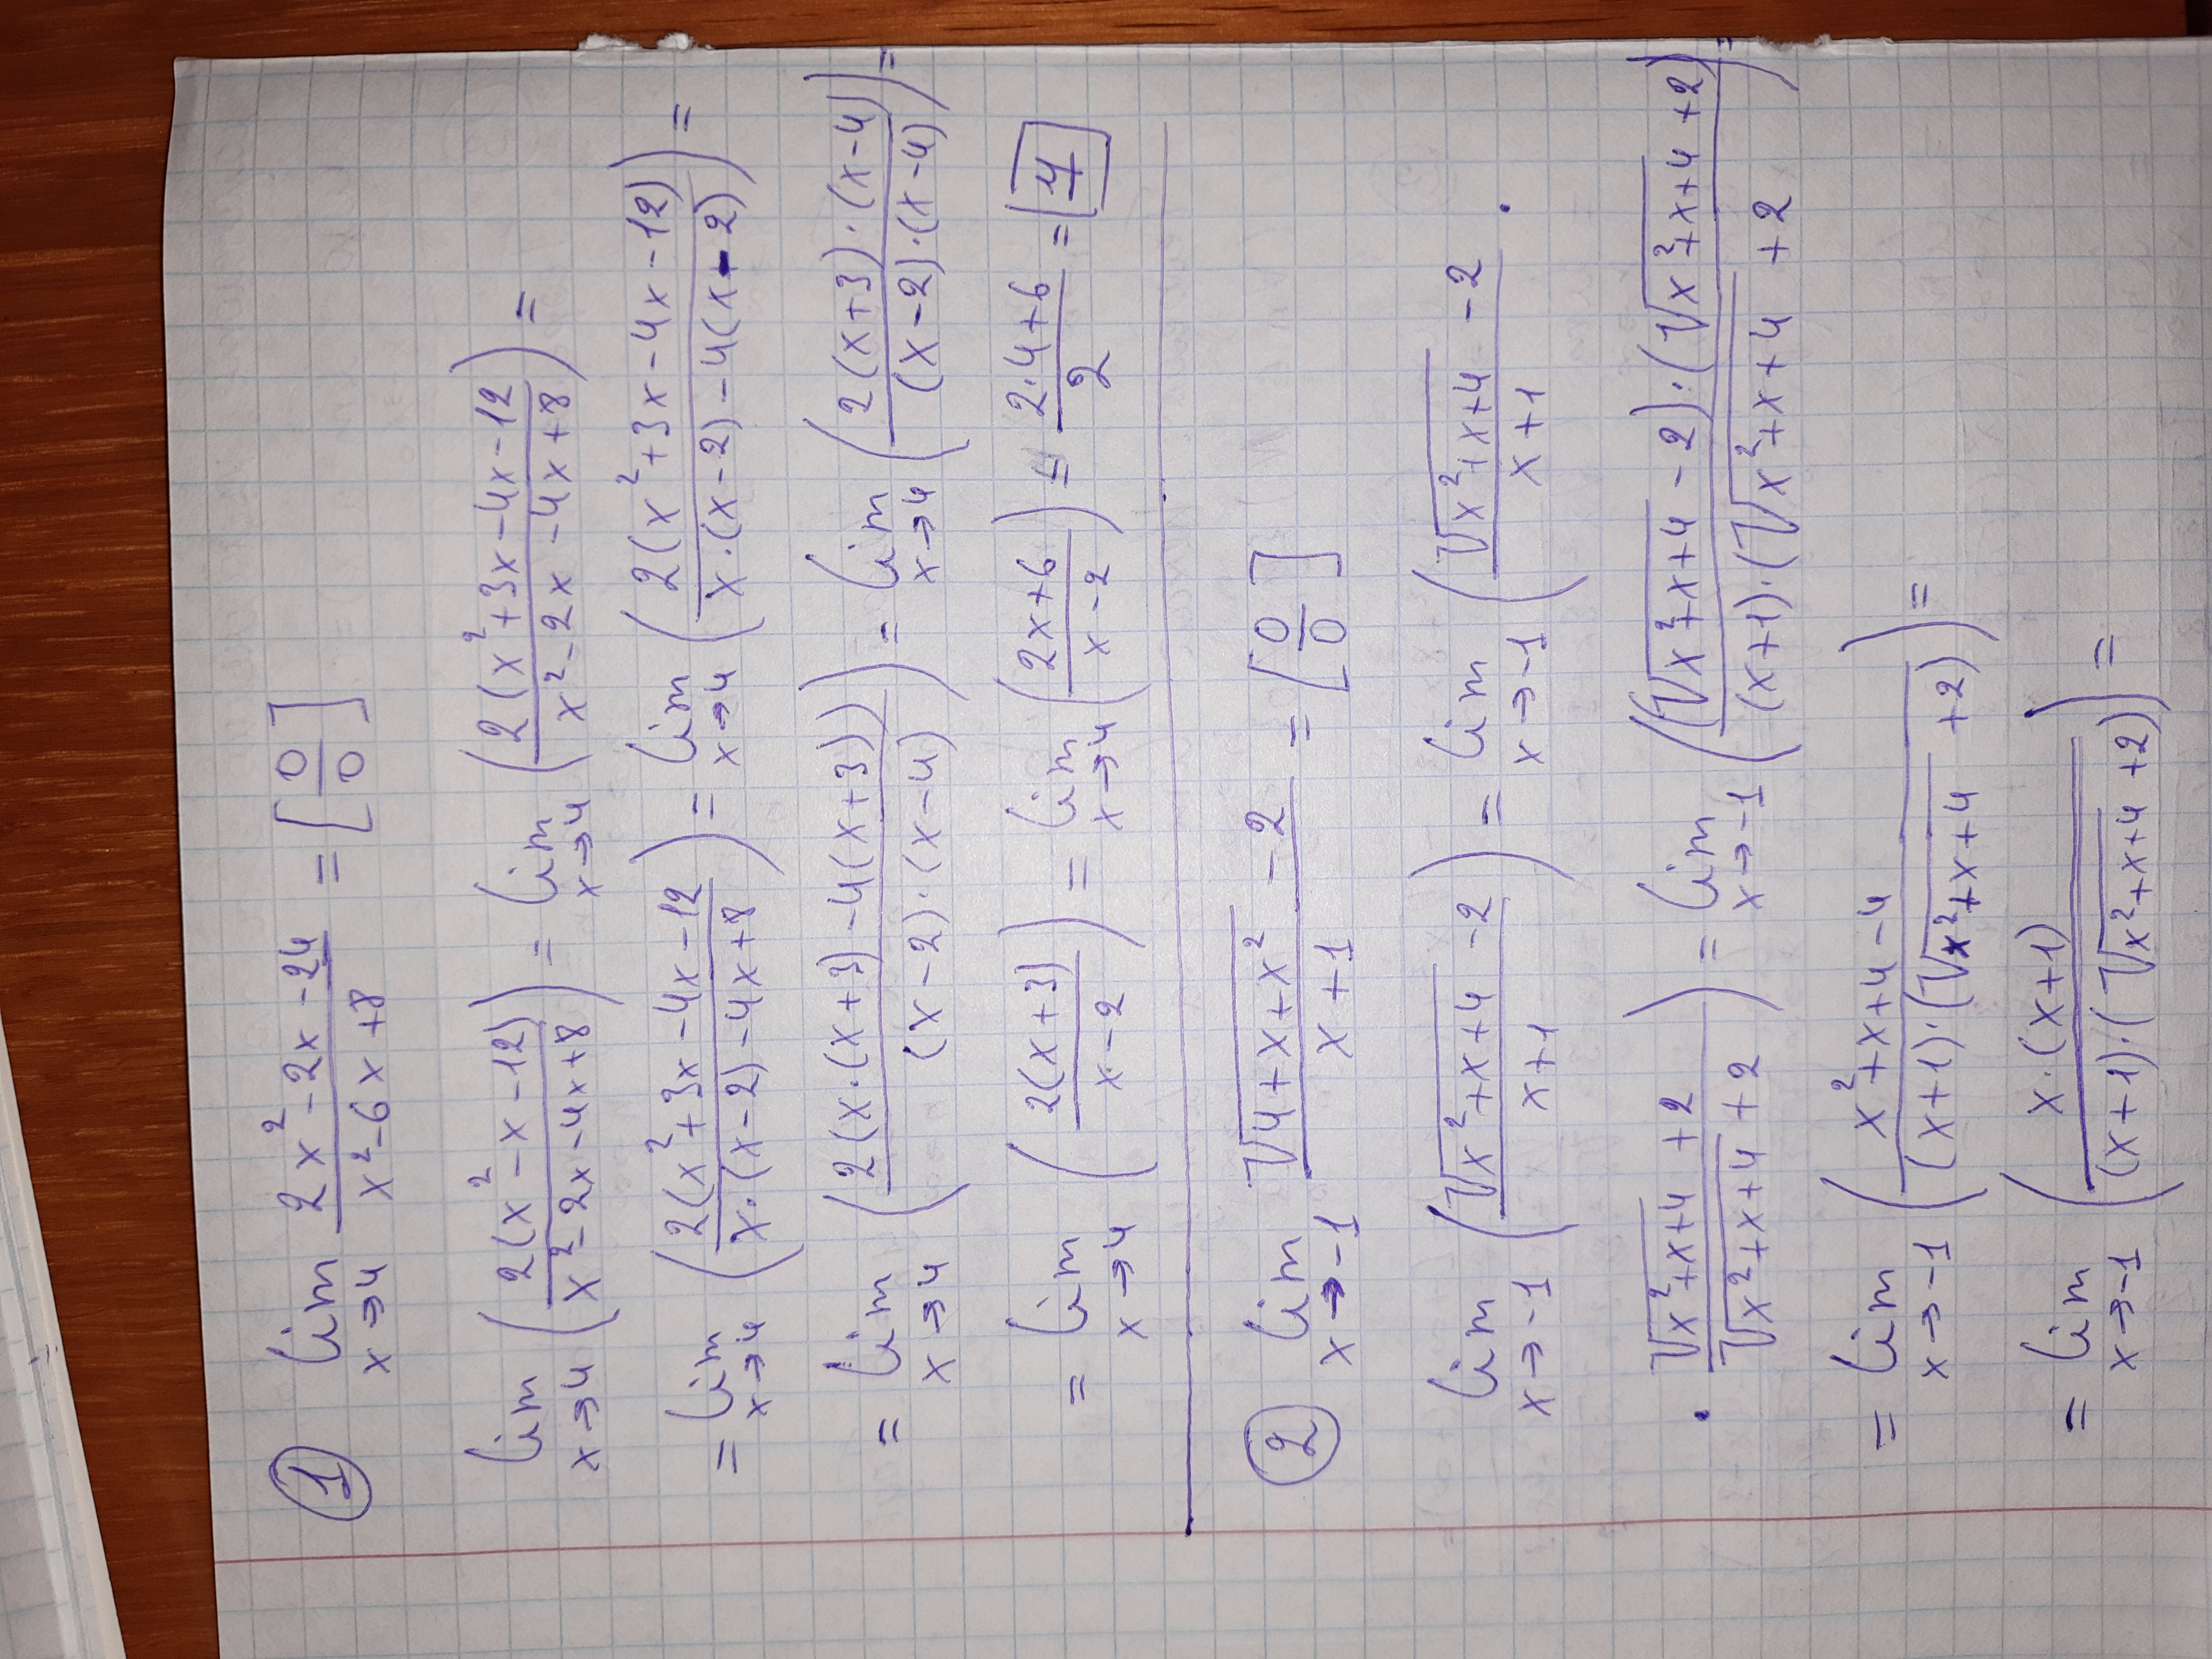 ① lim x→4 (2x²-2x-24)/(x²-6x+8) = [0/0]
lim x→4 (2(x²-x-12)/(x²-2x-4x+8)) = lim x→4 (2(x²+3x-4x-12/(x²-2x-4x+8)) =
= lim x→4 (2(x²+3x-4x-12/(x·(x-2)-4x+8)) = lim x→4 (2(x²+3x-4x-12)/(x·(x-2)-4(x-2))) =
= lim x→4 (2(x·(x+3)-4(x+3))/((x-2)·(x-4))) = lim x→4 (2(x+3)·(x-4)/((x-2)·(x-4))) =
= lim x→4 (2(x+3)/(x-2)) = lim x→4 ((2x+6)/(x-2)) = (2·4+6)/2 = 7
② lim x→-1 (√(4+x+x²) -2)/(x+1) = [0/0]
lim x→-1 ((√(x²+x+4) -2)/(x+1)) = lim x→-1 ((√(x²+x+4) -2)/(x+1) ·
· (√(x²+x+4) +2)/(√(x²+x+4) +2)) = lim x→-1 ((√(x²+x+4) -2)·(√(x²+x+4) +2)/((x+1)·(√(x²+x+4) +2)) =
= lim x→-1 ((x²+x+4-4)/((x+1)·(√(x²+x+4) +2))) =
= lim x→-1 (x·(x+1)/((x+1)·(√(x²+x+4) +2))) =